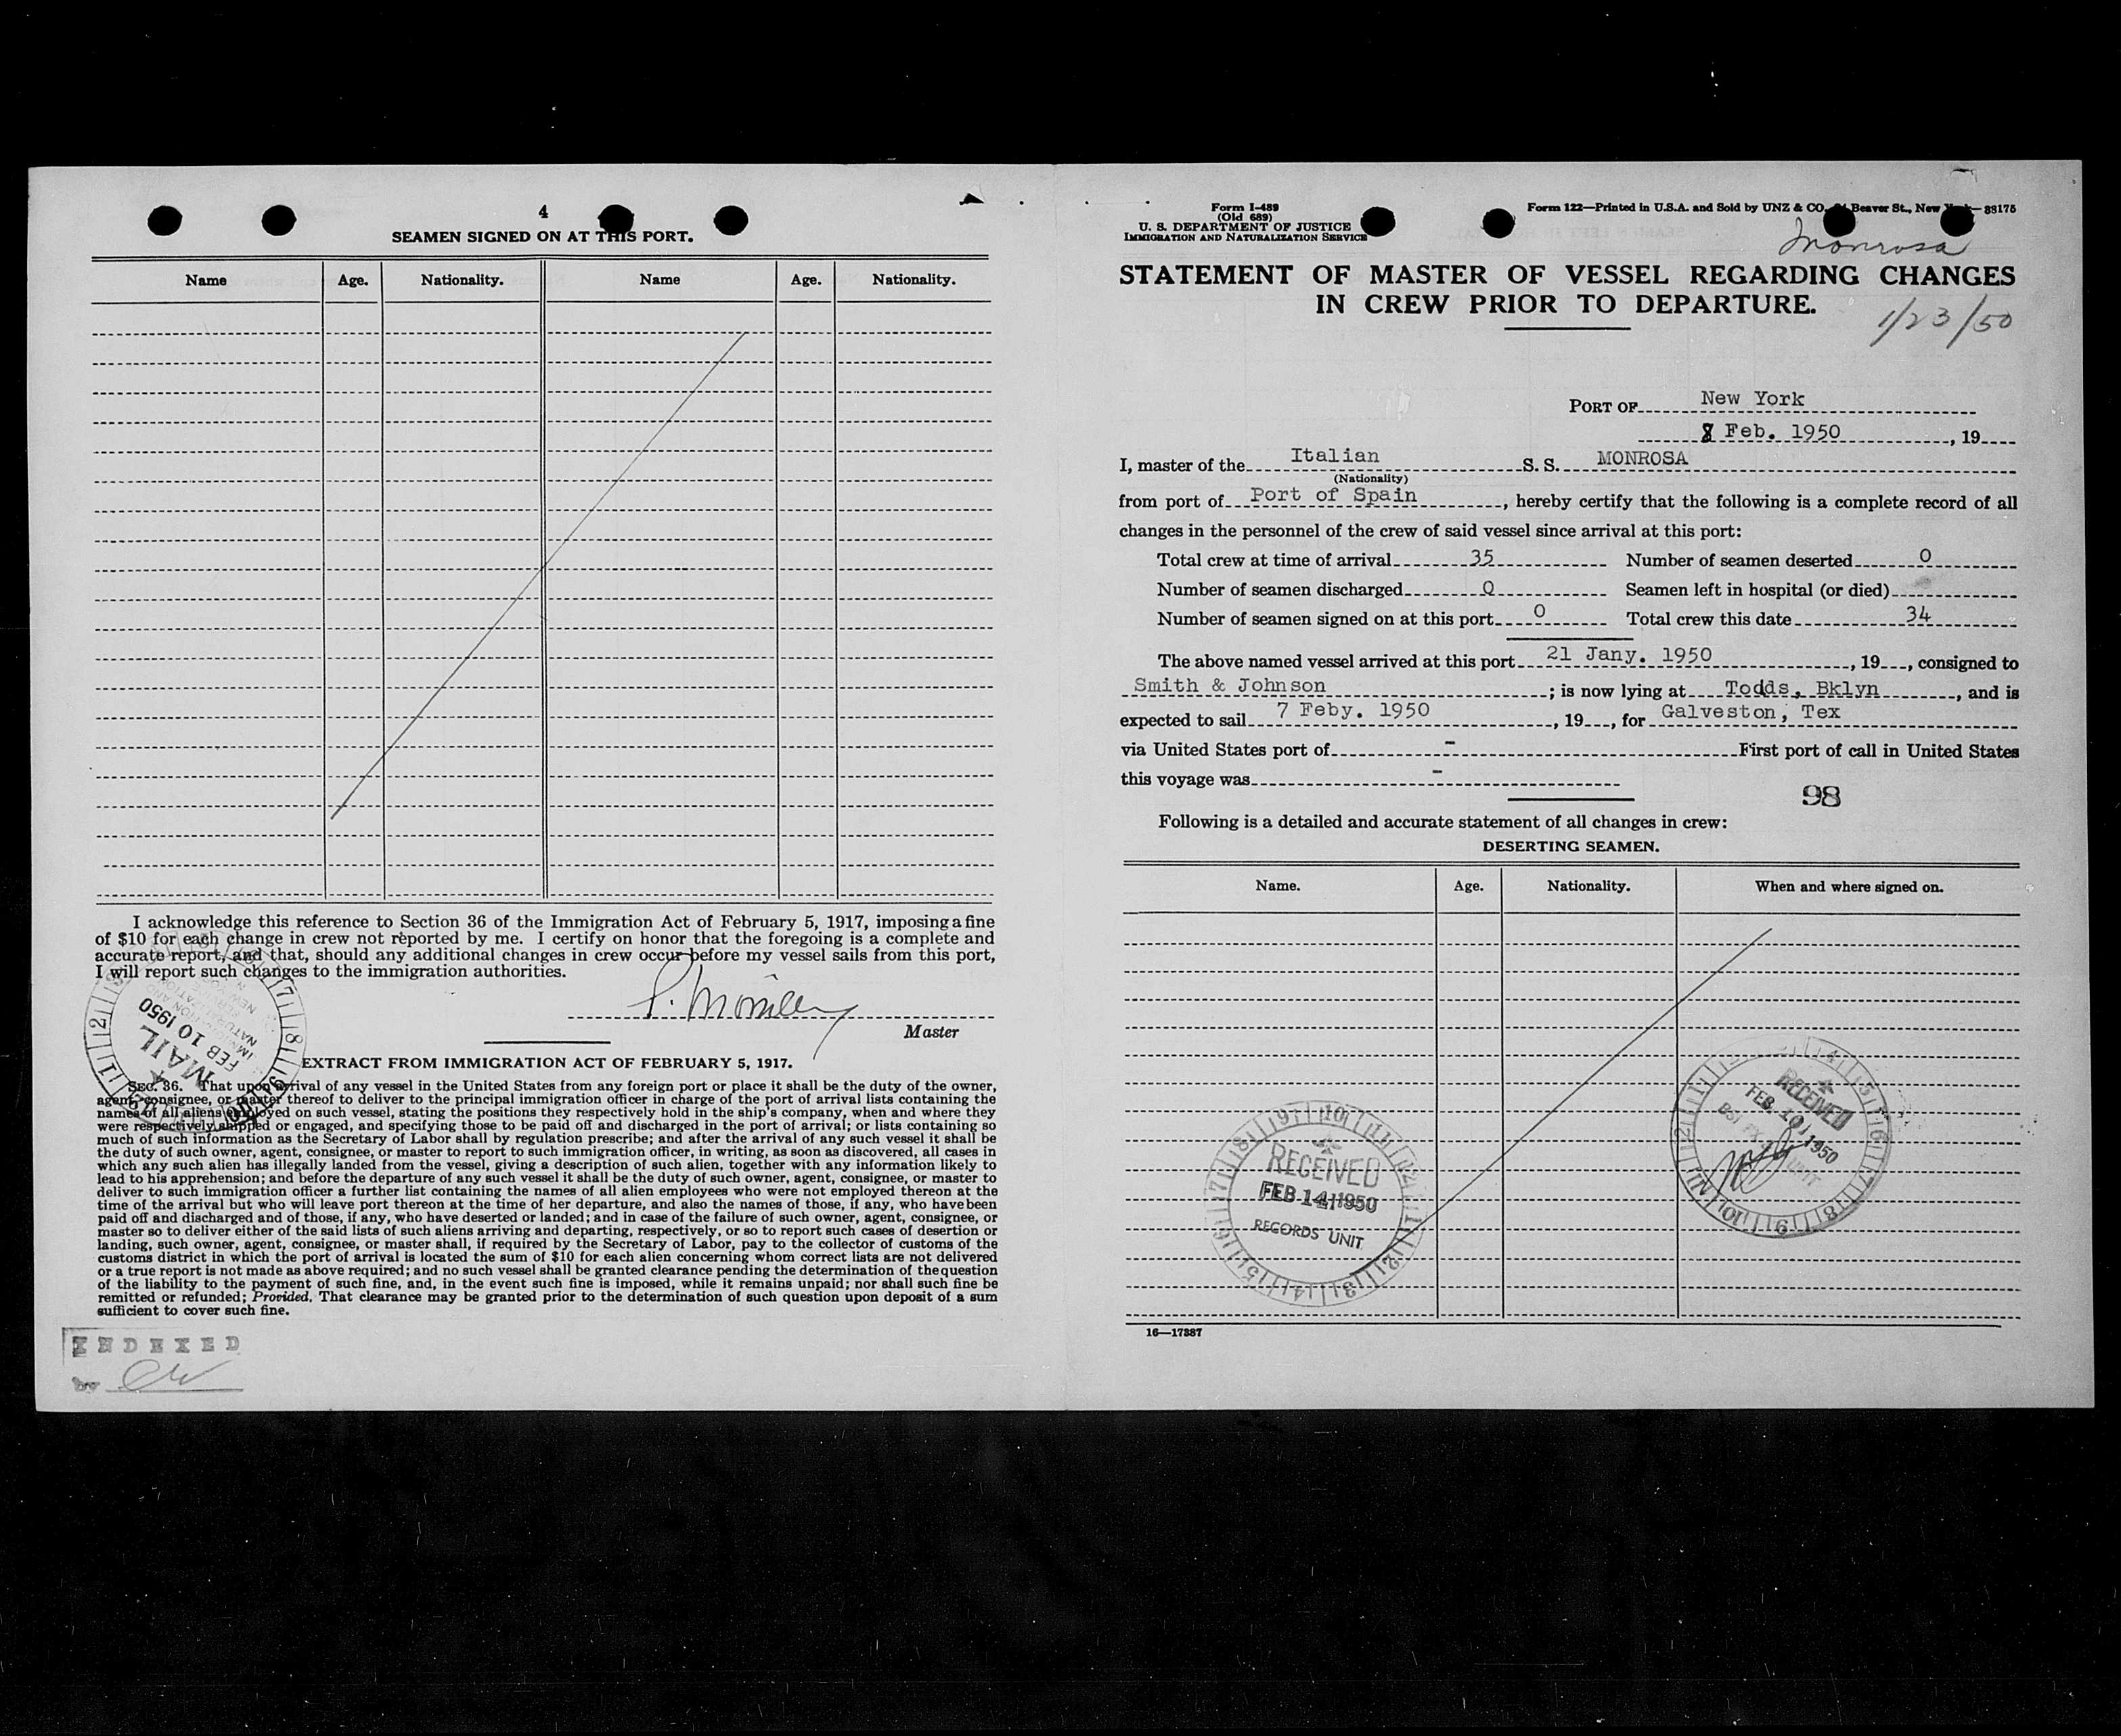 4
SEAMEN SIGNED ON AT THIS PORT.
Name Age. Nationality. Name Age. Nationality.
I acknowledge this reference to Section 36 of the Immigration Act of February 5, 1917, imposing a fine
of $10 for each change in crew not reported by me. I certify on honor that the foregoing is a complete and
accurate report, and that, should any additional changes in crew occur before my vessel sails from this port,
I will report such changes to the immigration authorities.
Master
MAIL
FEB 10 1950
EXTRACT FROM IMMIGRATION ACT OF FEBRUARY 5, 1917.
SEC. 36. That upon arrival of any vessel in the United States from any foreign port or place it shall be the duty of the owner,
agent, consignee, or master thereof to deliver to the principal immigration officer in charge of the port of arrival lists containing the
names of all aliens employed on such vessel, stating the positions they respectively hold in the ship's company, when and where they
were respectively shipped or engaged, and specifying those to be paid off and discharged in the port of arrival; or lists containing so
much of such information as the Secretary of Labor shall by regulation prescribe; and after the arrival of any such vessel it shall be
the duty of such owner, agent, consignee, or master to report to such immigration officer, in writing, as soon as discovered, all cases in
which any such alien has illegally landed from the vessel, giving a description of such alien, together with any information likely to
lead to his apprehension; and before the departure of any such vessel it shall be the duty of such owner, agent, consignee, or master to
deliver to such immigration officer a further list containing the names of all alien employees who were not employed thereon at the
time of the arrival but who will leave port thereon at the time of her departure, and also the names of those, if any, who have been
paid off and discharged and of those, if any, who have deserted or landed; and in case of the failure of such owner, agent, consignee, or
master so to deliver either of the said lists of such aliens arriving and departing, respectively, or so to report such cases of desertion or
landing, such owner, agent, consignee, or master shall, if required by the Secretary of Labor, pay to the collector of customs of the
customs district in which the port of arrival is located the sum of $10 for each alien concerning whom correct lists are not delivered
or a true report is not made as above required; and no such vessel shall be granted clearance pending the determination of the question
of the liability to the payment of such fine, and, in the event such fine is imposed, while it remains unpaid; nor shall such fine be
remitted or refunded; Provided, That clearance may be granted prior to the determination of such question upon deposit of a sum
sufficient to cover such fine.
INDEXED
by
Form I-489
(Old 689)
U. S. DEPARTMENT OF JUSTICE
IMMIGRATION AND NATURALIZATION SERVICE
Form 122—Printed in U.S.A. and Sold by UNZ & CO. Beaver St., New York—38175
Monrosa
STATEMENT OF MASTER OF VESSEL REGARDING CHANGES
IN CREW PRIOR TO DEPARTURE.
1/23/50
PORT OF New York
Feb. 1950, 19
I, master of the Italian S. S. MONROSA
(Nationality)
from port of Port of Spain, hereby certify that the following is a complete record of all
changes in the personnel of the crew of said vessel since arrival at this port:
Total crew at time of arrival 35 Number of seamen deserted 0
Number of seamen discharged 0 Seamen left in hospital (or died)
Number of seamen signed on at this port 0 Total crew this date 34
The above named vessel arrived at this port 21 Jany. 1950, 19, consigned to
Smith & Johnson; is now lying at Todds, Bklyn, and is
expected to sail 7 Feby. 1950, 19, for Galveston, Tex
via United States port of - First port of call in United States
this voyage was -
98
Following is a detailed and accurate statement of all changes in crew:
DESERTING SEAMEN.
Name. Age. Nationality. When and where signed on.
RECEIVED
FEB 10 1950
RECEIVED
FEB 14 1950
RECORDS UNIT
16—17387